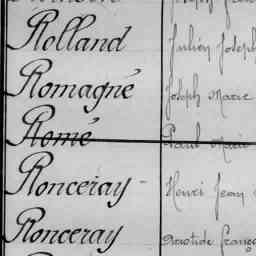 Rolland Julien Joseph
Romagné Joseph Marie
Romé Paul Marie
Ronceray - Henri Jean
Ronceray Aristide Franço